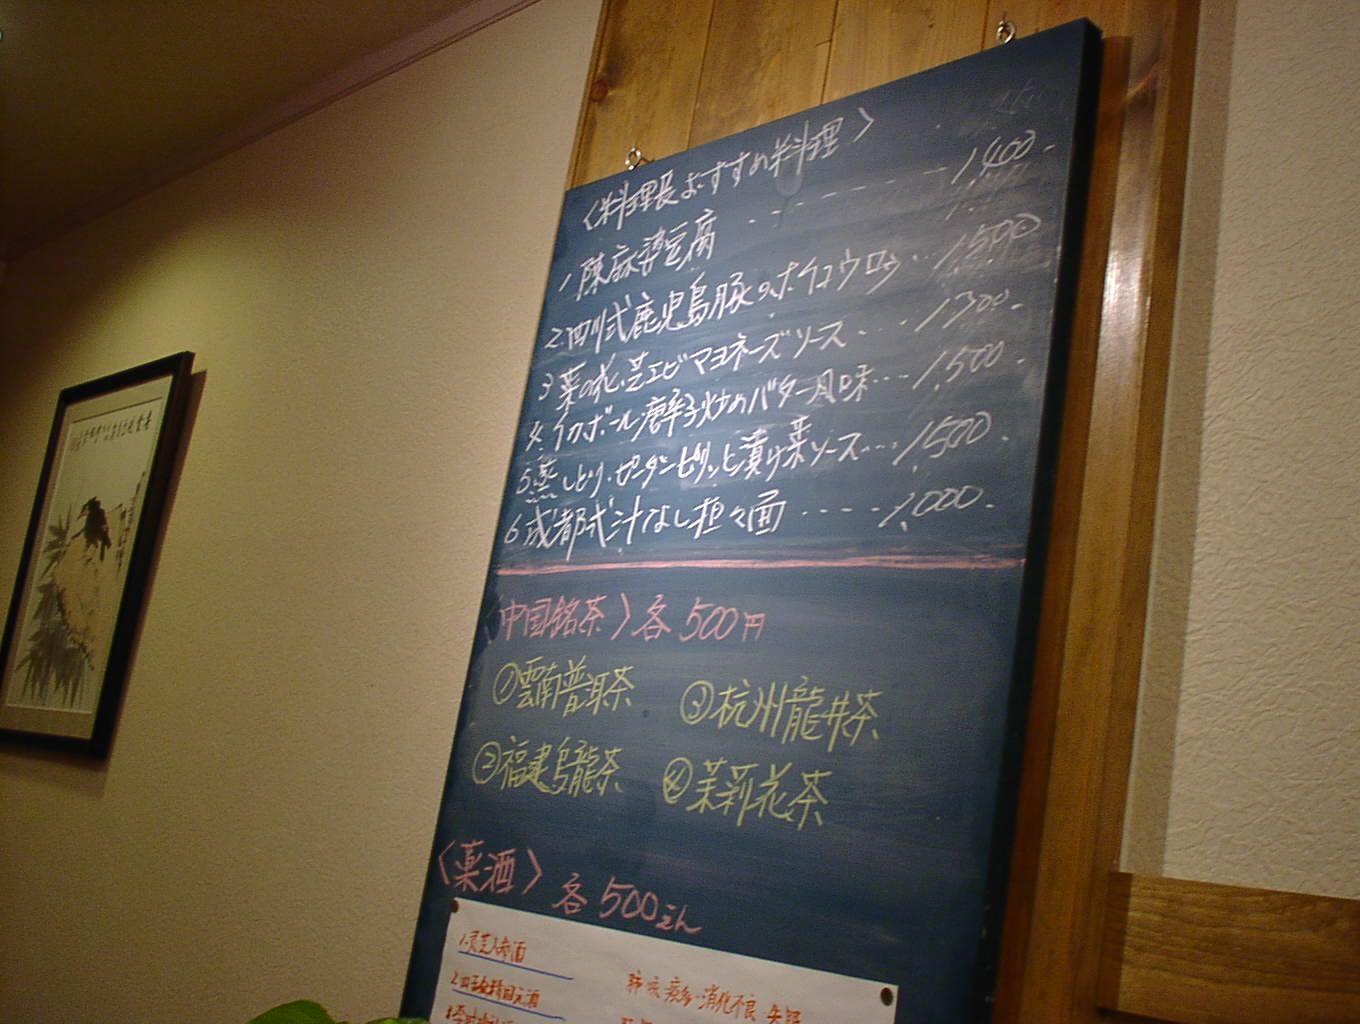 〈料理長おすすめ料理〉
1 陳麻婆豆腐 ------- 1,400-
2. 四川式鹿児島豚のホイコウロウ… 1,500
3 菜の花、芝エビマヨネーズソース … 1,300-
4. イカボール唐辛子炒のバター風味… 1,500-
5. 蒸しどり・ピータンピリッと漬け菜ソース… 1,500-
6 成都式汁なし担々面 ---- 1,000-
〈中国銘茶〉各500円
①雲南普洱茶
③杭州龍井茶
②福建烏龍茶
④茉莉花茶
〈薬酒〉各500えん
消化不良